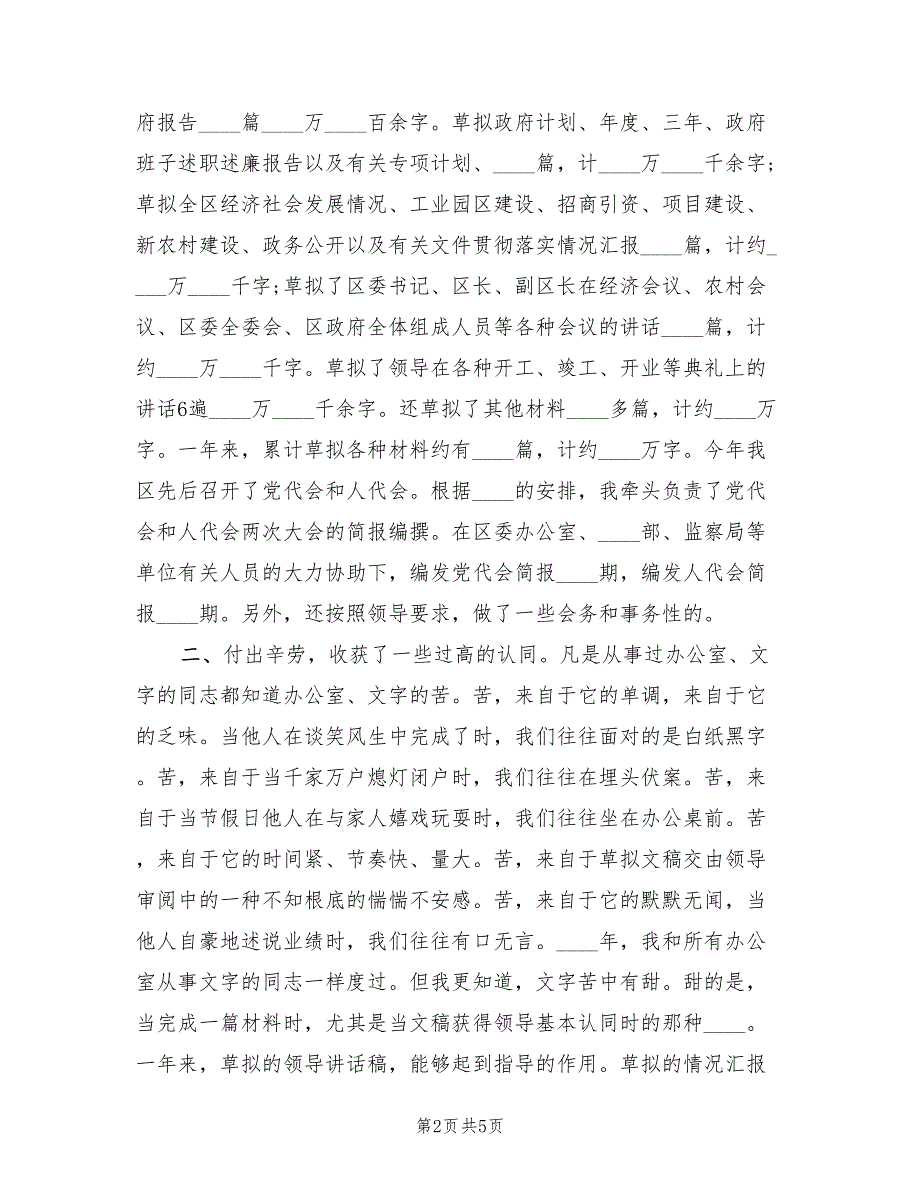 府报告____篇____万____百余字。草拟政府计划、年度、三年、政府
班子述职述廉报告以及有关专项计划、____篇，计____万____千余字;
草拟全区经济社会发展情况、工业园区建设、招商引资、项目建设、
新农村建设、政务公开以及有关文件贯彻落实情况汇报____篇，计约_
___万____千字;草拟了区委书记、区长、副区长在经济会议、农村会
议、区委全委会、区政府全体组成人员等各种会议的讲话____篇，计
约____万____千字。草拟了领导在各种开工、竣工、开业等典礼上的
讲话6遍____万____千余字。还草拟了其他材料____多篇，计约____万
字。一年来，累计草拟各种材料约有____篇，计约____万字。今年我
区先后召开了党代会和人代会。根据____的安排，我牵头负责了党代
会和人代会两次大会的简报编撰。在区委办公室、____部、监察局等
单位有关人员的大力协助下，编发党代会简报____期，编发人代会简
报____期。另外，还按照领导要求，做了一些会务和事务性的。
二、付出辛劳，收获了一些过高的认同。凡是从事过办公室、文
字的同志都知道办公室、文字的苦。苦，来自于它的单调，来自于它
的乏味。当他人在谈笑风生中完成了时，我们往往面对的是白纸黑字
。苦，来自于当千家万户熄灯闭户时，我们往往在埋头伏案。苦，来
自于当节假日他人在与家人嬉戏玩耍时，我们往往坐在办公桌前。苦
，来自于它的时间紧、节奏快、量大。苦，来自于草拟文稿交由领导
审阅中的一种不知根底的惴惴不安感。苦，来自于它的默默无闻，当
他人自豪地述说业绩时，我们往往有口无言。____年，我和所有办公
室从事文字的同志一样度过。但我更知道，文字苦中有甜。甜的是，
当完成一篇材料时，尤其是当文稿获得领导基本认同时的那种____。
一年来，草拟的领导讲话稿，能够起到指导的作用。草拟的情况汇报
第2页共5页